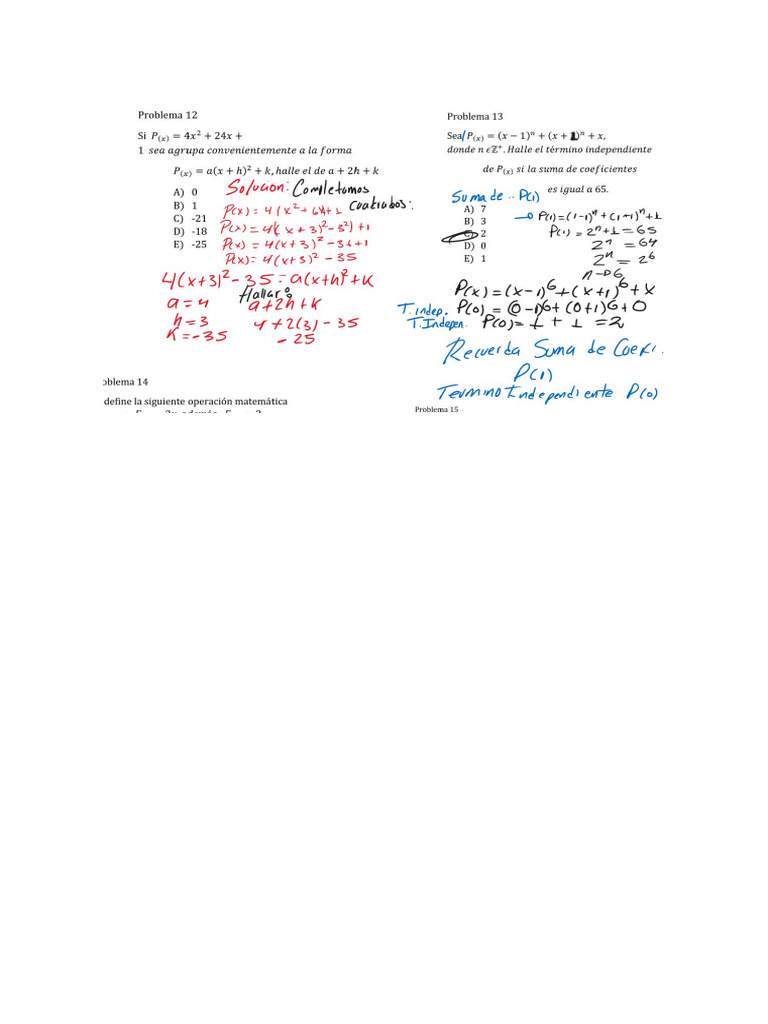 Problema 12
Si P(x) = 4x² + 24x +
1 sea agrupa convenientemente a la forma
P(x) = a(x + h)² + k, halle el de a + 2h + k
A) 0
B) 1
C) -21
D) -18
E) -25
Solucion: Completamos
cuadrados:
P(x) = 4(x² + 6x)+1
P(x) = 4((x+3)² - 3²) + 1
P(x) = 4(x+3)² - 36 + 1
P(x) = 4(x+3)² - 35
4(x+3)² - 35 = a(x+h)² + k
Hallar:
a = 4
a + 2h + k
h = 3
4 + 2(3) - 35
k = -35
- 25
oblema 14
define la siguiente operación matemática
Problema 13
Sea P(x) = (x − 1)ⁿ + (x + 1)ⁿ + x,
donde n ϵℤ⁺. Halle el término independiente
de P(x) si la suma de coeficientes
es igual a 65.
Suma de .. P(1)
A) 7
B) 3
C) 2
D) 0
E) 1
→ P(1) = (1-1)ⁿ + (1+1)ⁿ + 1
P(1) = 2ⁿ + 1 = 65
2ⁿ = 64
2ⁿ = 2⁶
n → 6
P(x) = (x-1)⁶ + (x+1)⁶ + x
T. indep. P(0) = (0-1)⁶ + (0+1)⁶ + 0
T. Indepen. P(0) = 1 + 1 = 2
Recuerda Suma de Coefi.
P(1)
Termino Independiente P(0)
Problema 15